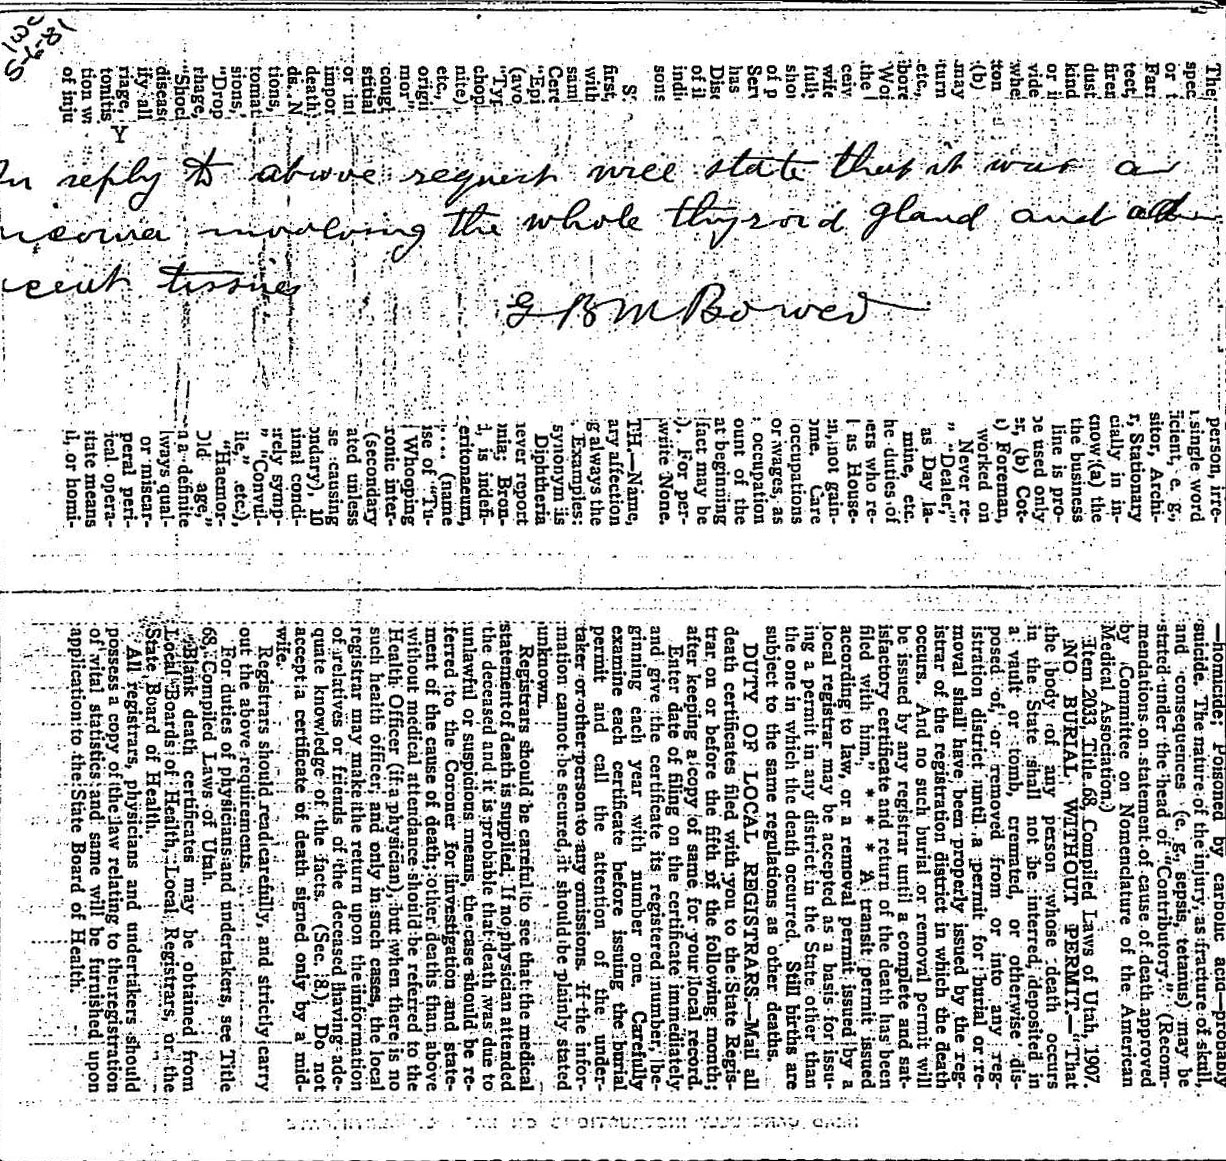 13C
5-6-81
Y
In reply to above request will state that it was a
involving the whole thyroid gland and
cent tissues
G B M Bower
The person, irre-
spec single word
or t icient, e. g.,
Far sitor, Archi-
tect, r, Stationary
firer cially in in-
dust know (a) the
kind the business
or i line is pro-
vide be used only
whe er, (b) Cot-
ton ) Foreman,
(b) worked on
may Never re-
turn "Dealer,"
etc., as Day la-
bore mine, etc.
Wo he duties of
the ers who re-
ceiv l as House-
wife n, not gain-
full ome. Care
sho occupations
of p or wages, as
Ser occupation
has ount of the
Dise at beginning
of il fact may be
indi ). For per-
sons write None.
S TH.—Name,
first, ary affection
with g always the
sam Examples:
Cere synonym is
"Epi Diphtheria
(avo never report
"Ty mia; Bron-
chop i, is indefi-
nite) eritonaeum,
etc., (name
origi ise of "Tu-
mor" Whooping
coug ronic inter-
stitial (secondary
or int ated unless
impor se causing
death ondary), 10
ds. N inal condi-
tions, rely symp-
tomat "Convul-
sions, ile," etc.),
"Drop "Haemor-
rhage, Old age,"
"Shoc n a definite
diseas lways qual-
ify all or miscar-
riage, peral peri-
tonitis ical opera-
tion w state means
of inju l, or homi-
—homicide; Poisoned by carbolic acid—probably
suicide. The nature of the injury, as fracture of skull,
and consequences (e. g., sepsis, tetanus) may be
stated under the head of "Contributory." (Recom-
mendations on statement of cause of death approved
by Committee on Nomenclature of the American
Medical Association.)
Item 2033, Title 68, Compiled Laws of Utah, 1907.
NO BURIAL WITHOUT PERMIT.—"That
the body of any person whose death occurs
in the State shall not be interred, deposited in
a vault or tomb, cremated, or otherwise dis-
posed of, or removed from or into any reg-
istration district until a permit for burial or re-
moval shall have been properly issued by the reg-
istrar of the registration district in which the death
occurs. And no such burial or removal permit will
be issued by any registrar until a complete and sat-
isfactory certificate and return of the death has been
filed with him," * * * A transit permit issued
according to law, or a removal permit issued by a
local registrar may be accepted as a basis for issu-
ing a permit in any district in the State other than
the one in which the death occurred. Still births are
subject to the same regulations as other deaths.
DUTY OF LOCAL REGISTRARS.—Mail all
death certificates filed with you to the State Regis-
trar on or before the fifth of the following month;
after keeping a copy of same for your local record.
Enter date of filing on the certificate immediately
and give the certificate its registered number, be-
ginning each year with number one. Carefully
examine each certificate before issuing the burial
permit and call the attention of the under-
taker or other person to any omissions. If the infor-
mation cannot be secured, it should be plainly stated
unknown.
Registrars should be careful to see that the medical
statement of death is supplied. If no physician attended
the deceased and it is probable that death was due to
unlawful or suspicious means, the case should be re-
ferred to the Coroner for investigation and state-
ment of the cause of death; other deaths than above
without medical attendance should be referred to the
Health Officer (if a physician), but when there is no
such health officer, and only in such cases, the local
registrar may make the return upon the information
of relatives or friends of the deceased having ade-
quate knowledge of the facts. (Sec. 8.). Do not
accept a certificate of death signed only by a mid-
wife.
Registrars should read carefully, and strictly carry
out the above requirements.
For duties of physicians and undertakers, see Title
68, Compiled Laws of Utah.
Blank death certificates may be obtained from
Local Boards of Health, Local Registrars, or the
State Board of Health.
All registrars, physicians and undertakers should
possess a copy of the law relating to the registration
of vital statistics and same will be furnished upon
application to the State Board of Health.